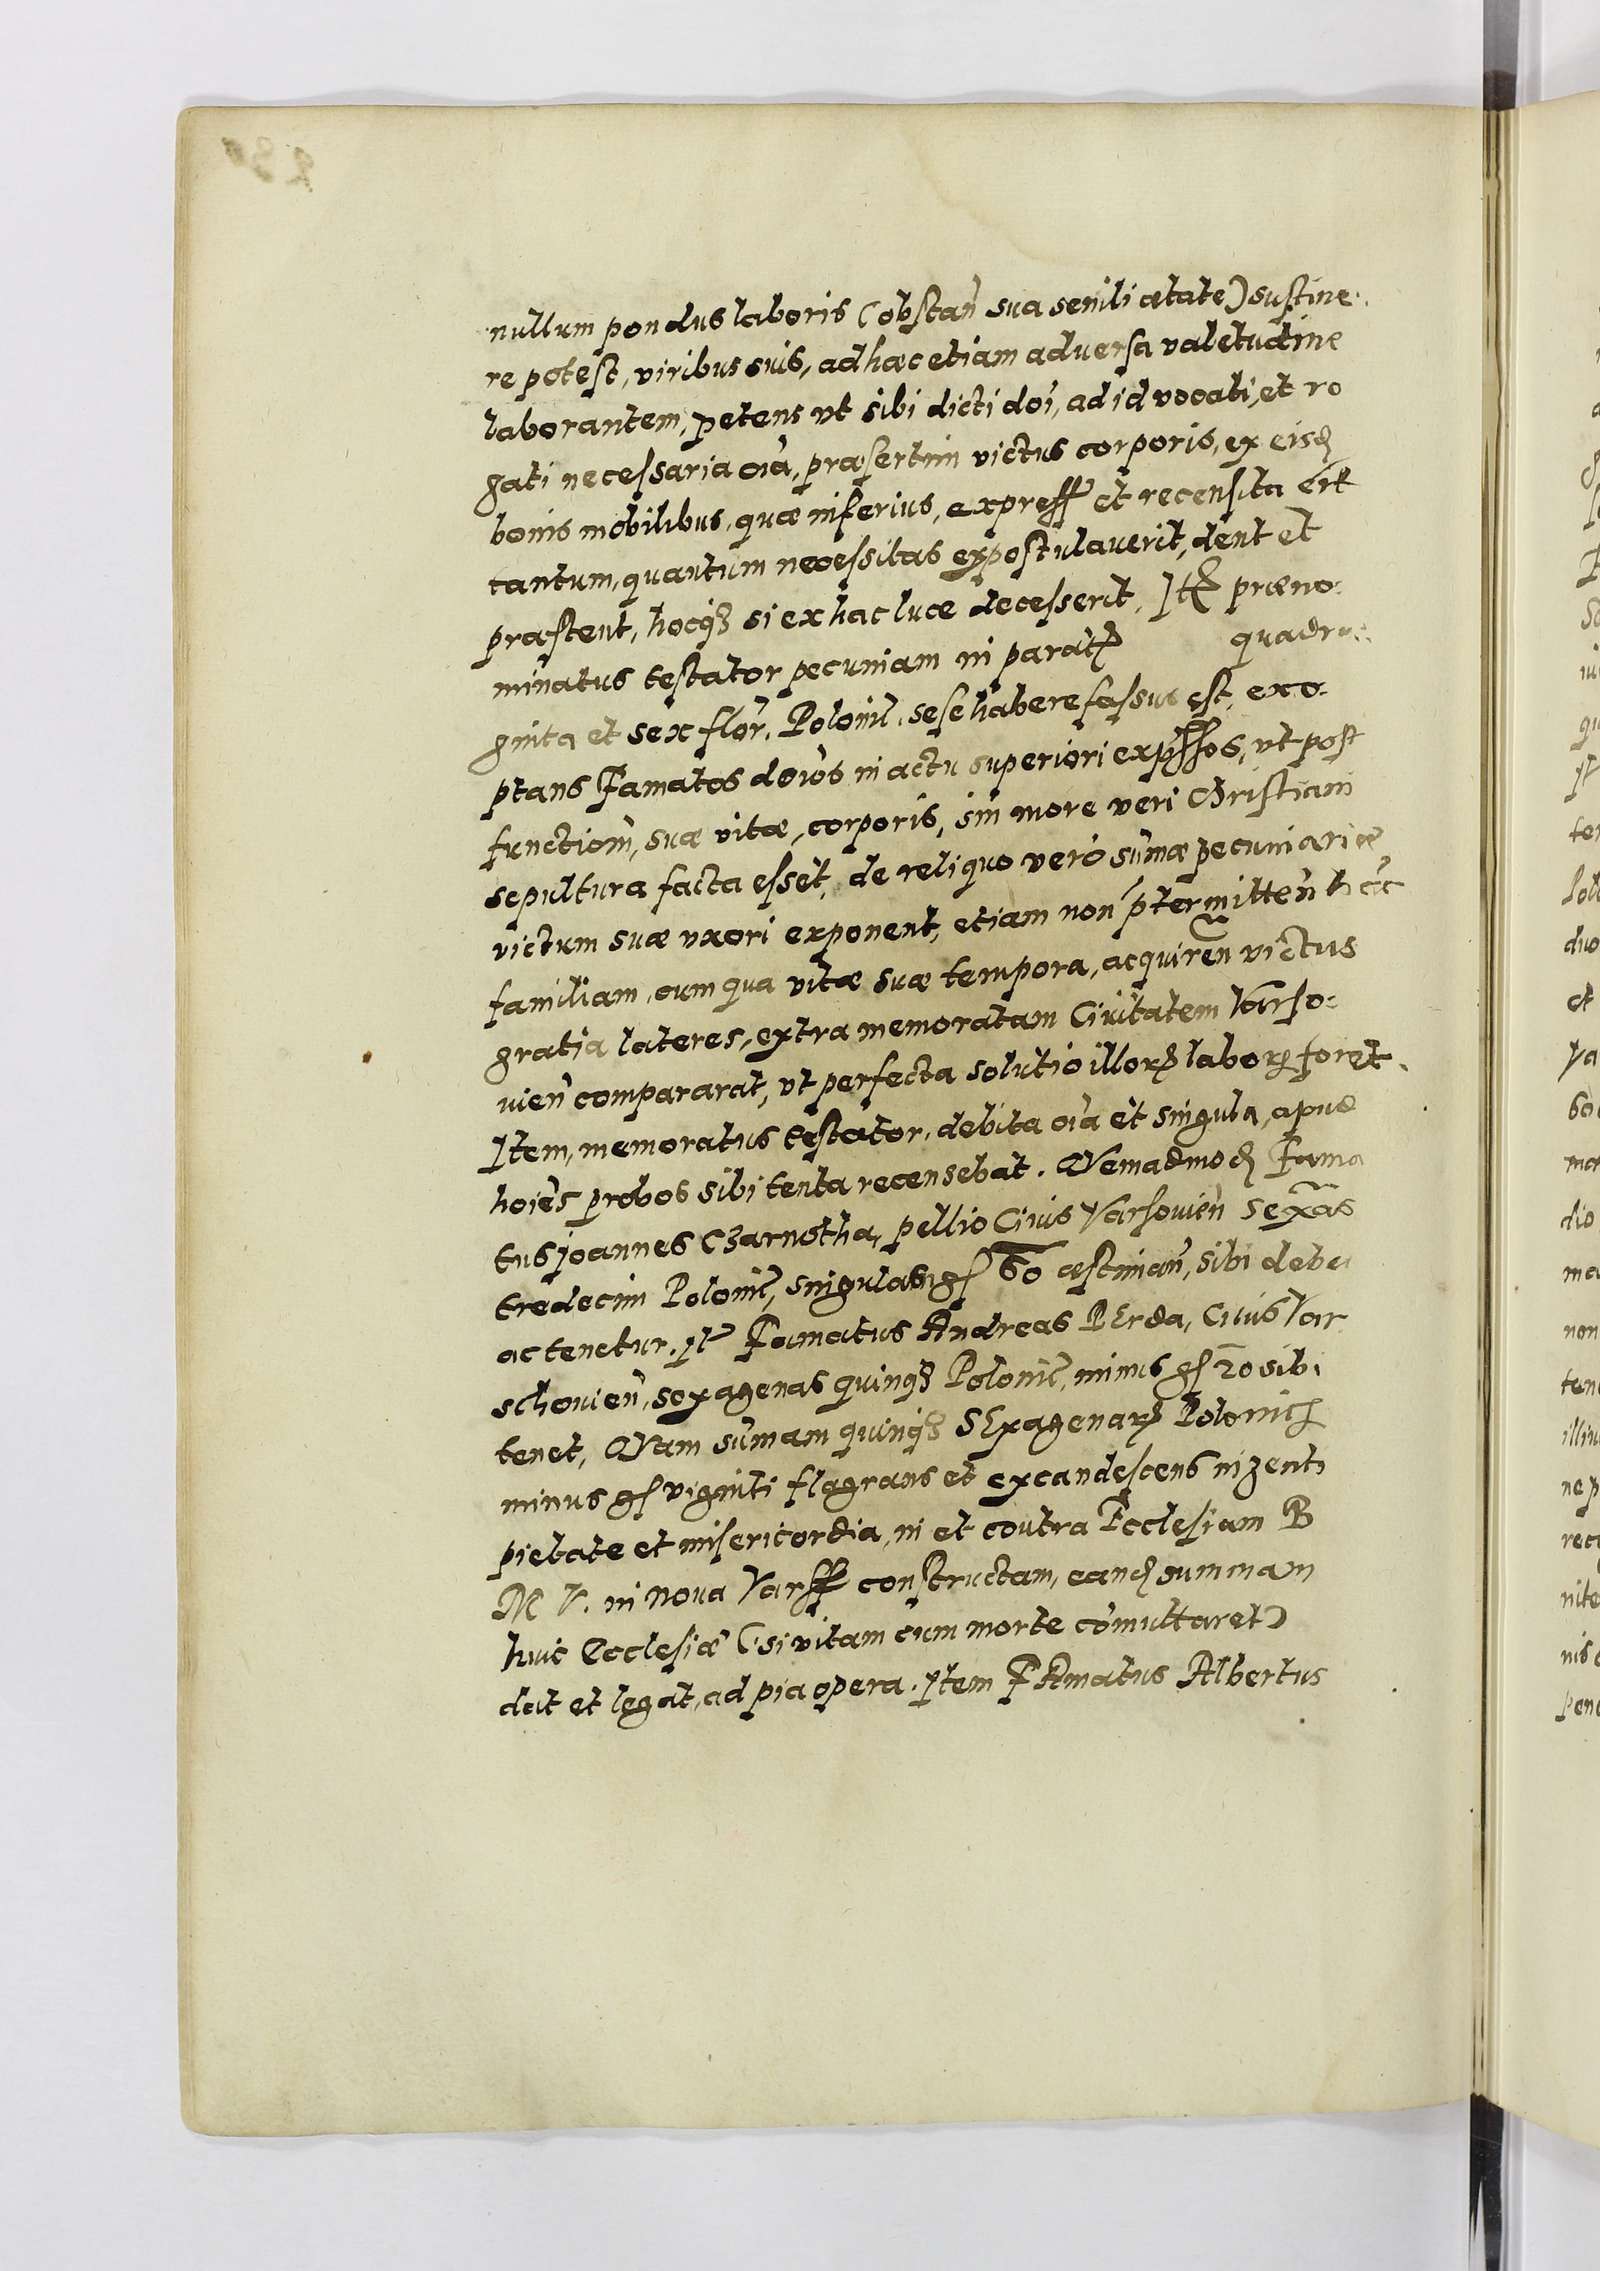 nullum pondus laboris (obstan̄ sua senili ætate) sustine
re potest, viribus suis, ad hæc etiam adversa valetudine
laborantem, petens ut sibi dicti doi, ad id vocati, et ro
gati necessaria oia, præsertim victus corporis, ex eisd
bonis mobilibus, quæ inferius, express et recensita
tantum, quantum necessitas expostulaverit, dent et
præstent, hocq si ex hac luce decesserit, It præno
minatus testator pecuniam in parat quadra
ginta et sex flor. Poloni, sese habere fassus est, exo
ptans Famatos doios in actu superiori expssos, ut post
function, suæ vitæ, corporis, sin more veri Christiani
sepultura facta esset, de reliquo vero sum̄æ pecuniariæ
victum suæ uxori exponent, etiam non ptermitten
familiam, cum qua vitæ suæ tempora, acquiren victus
gratia lateres, extra memoratam Civitatem Varso
vien comparârat, ut perfecta solutio illor labor foret.
Item, memoratus testator, debita oia et singula, apud
hoies probos sibi tenta recensebat. Quemadmod Fama
tus Joannes Czarnotha, pellio Civis Varsovien Sexas
tredecim Poloni, singulas gs 60 æstiman, sibi debet
ac tenetur. It Famatus Andreas BErda, Civis Var
schovien, sexagenas quinq Poloni, minus gs 20 sibi
tenet, Quam sum̄am quinq SExagenar Polonic
minus gs viginti flagrans et excandescens
pietate et misericordia, in et contra Ecclesiam B
M V. in nova Varss constructam, eand summam
huic Ecclesiæ (si vitam cum morte com̄uttaret)
dat et legat, ad pia opera. Item FAmatus Albertus